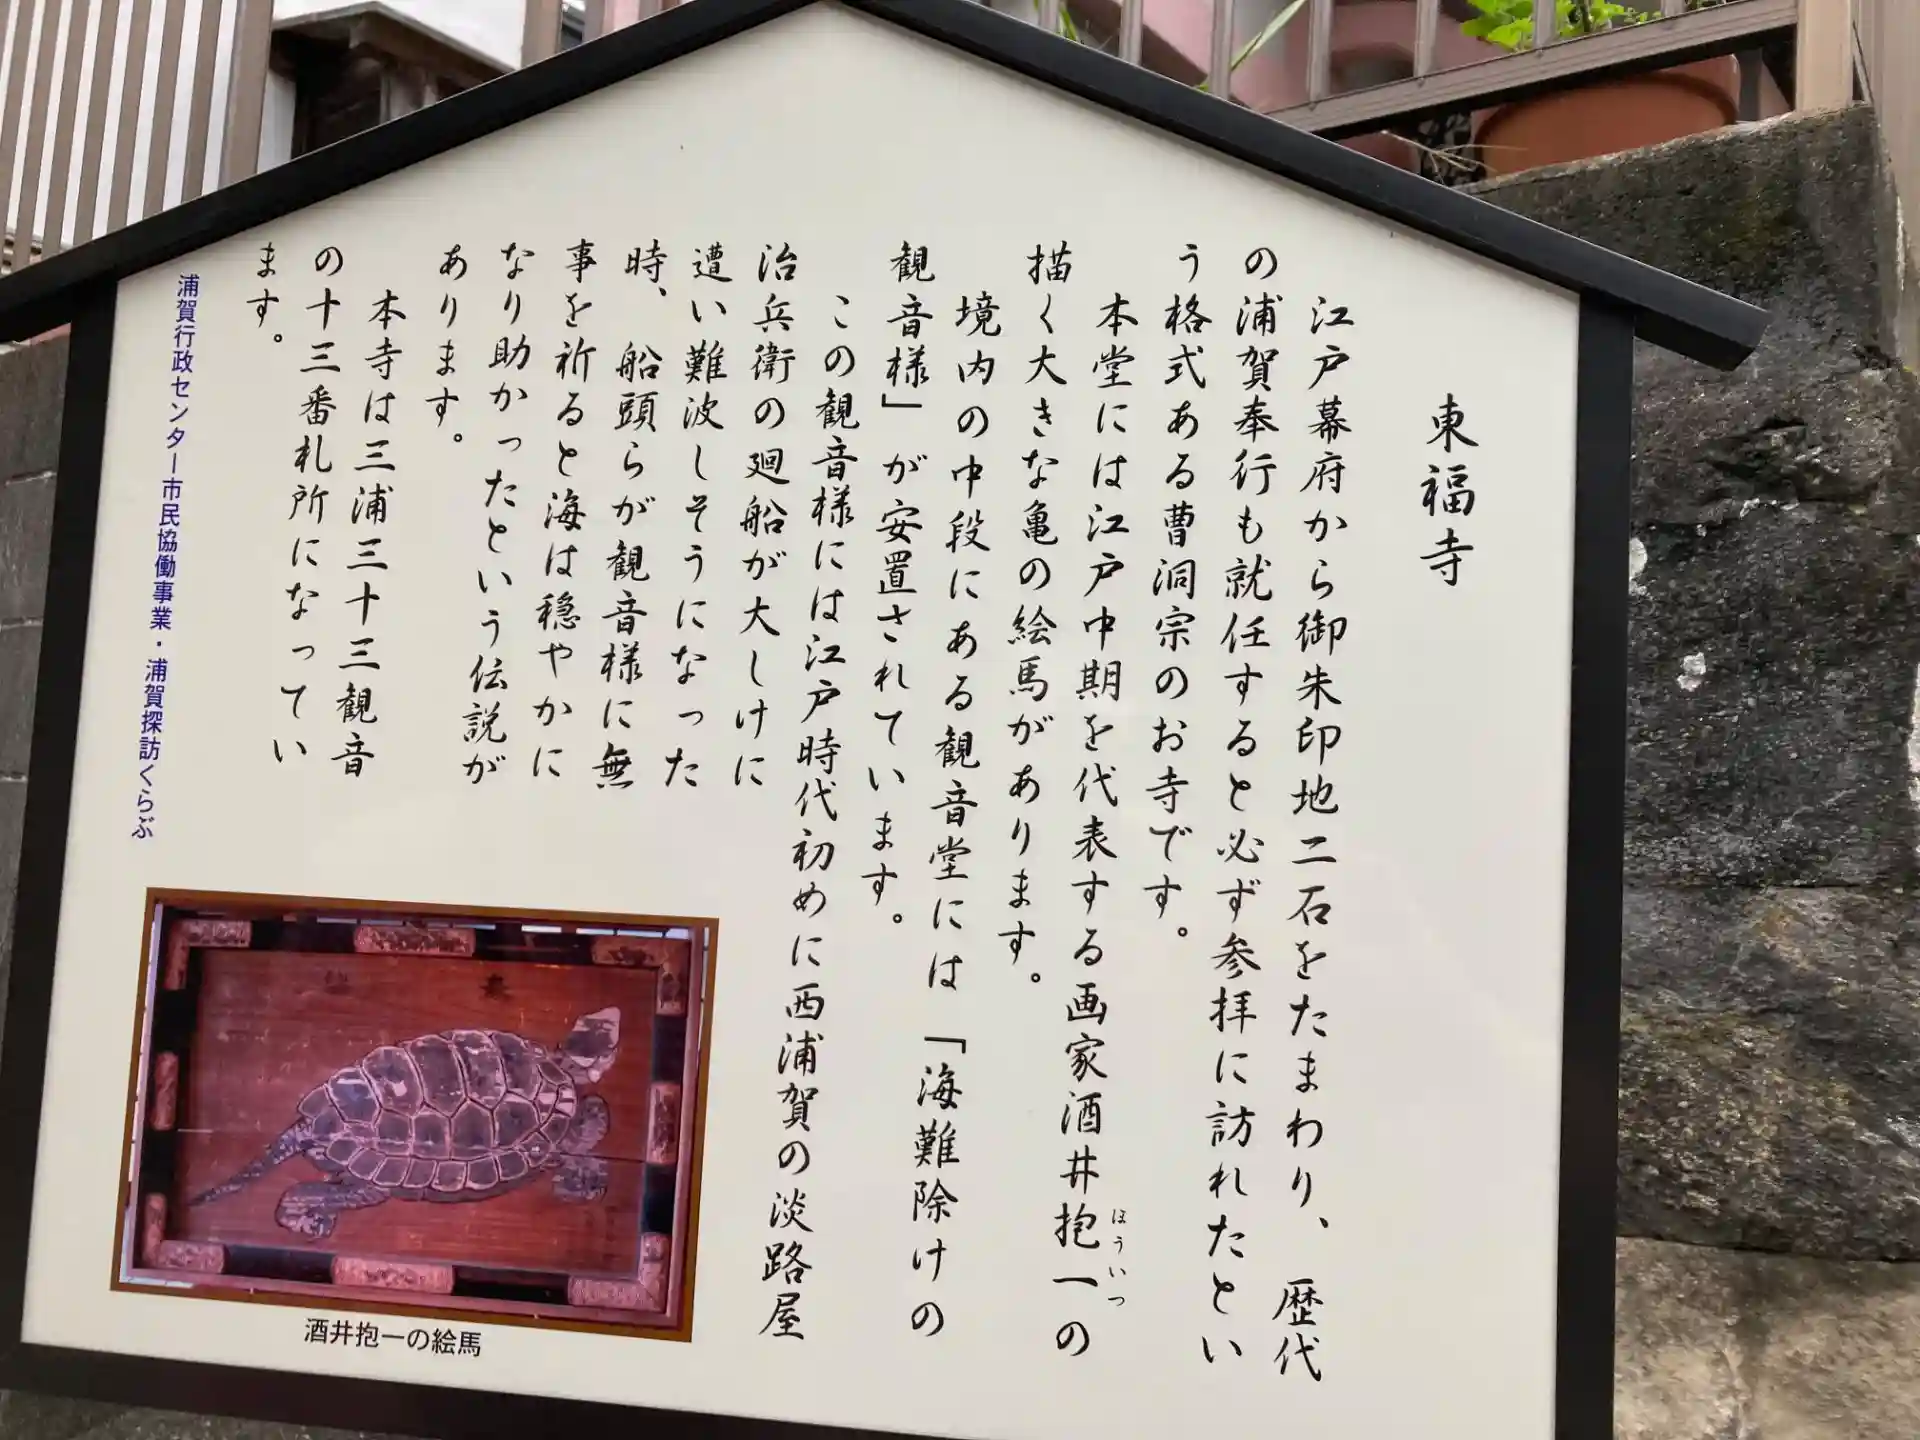 東福寺
江戸幕府から御朱印地二石をたまわり、歴代
の浦賀奉行も就任すると必ず参拝に訪れたとい
う格式ある曹洞宗のお寺です。
本堂には江戸中期を代表する画家酒井抱一の
ほういつ
描く大きな亀の絵馬があります。
境内の中段にある観音堂には「海難除けの
観音様」が安置されています。
この観音様には江戸時代初めに西浦賀の淡路屋
治兵衛の廻船が大しけに
遭い難波しそうになった
時、船頭らが観音様に無
事を祈ると海は穏やかに
なり助かったという伝説が
あります。
本寺は三浦三十三観音
の十三番札所になってい
ます。
浦賀行政センター市民協働事業・浦賀探訪くらぶ
酒井抱一の絵馬